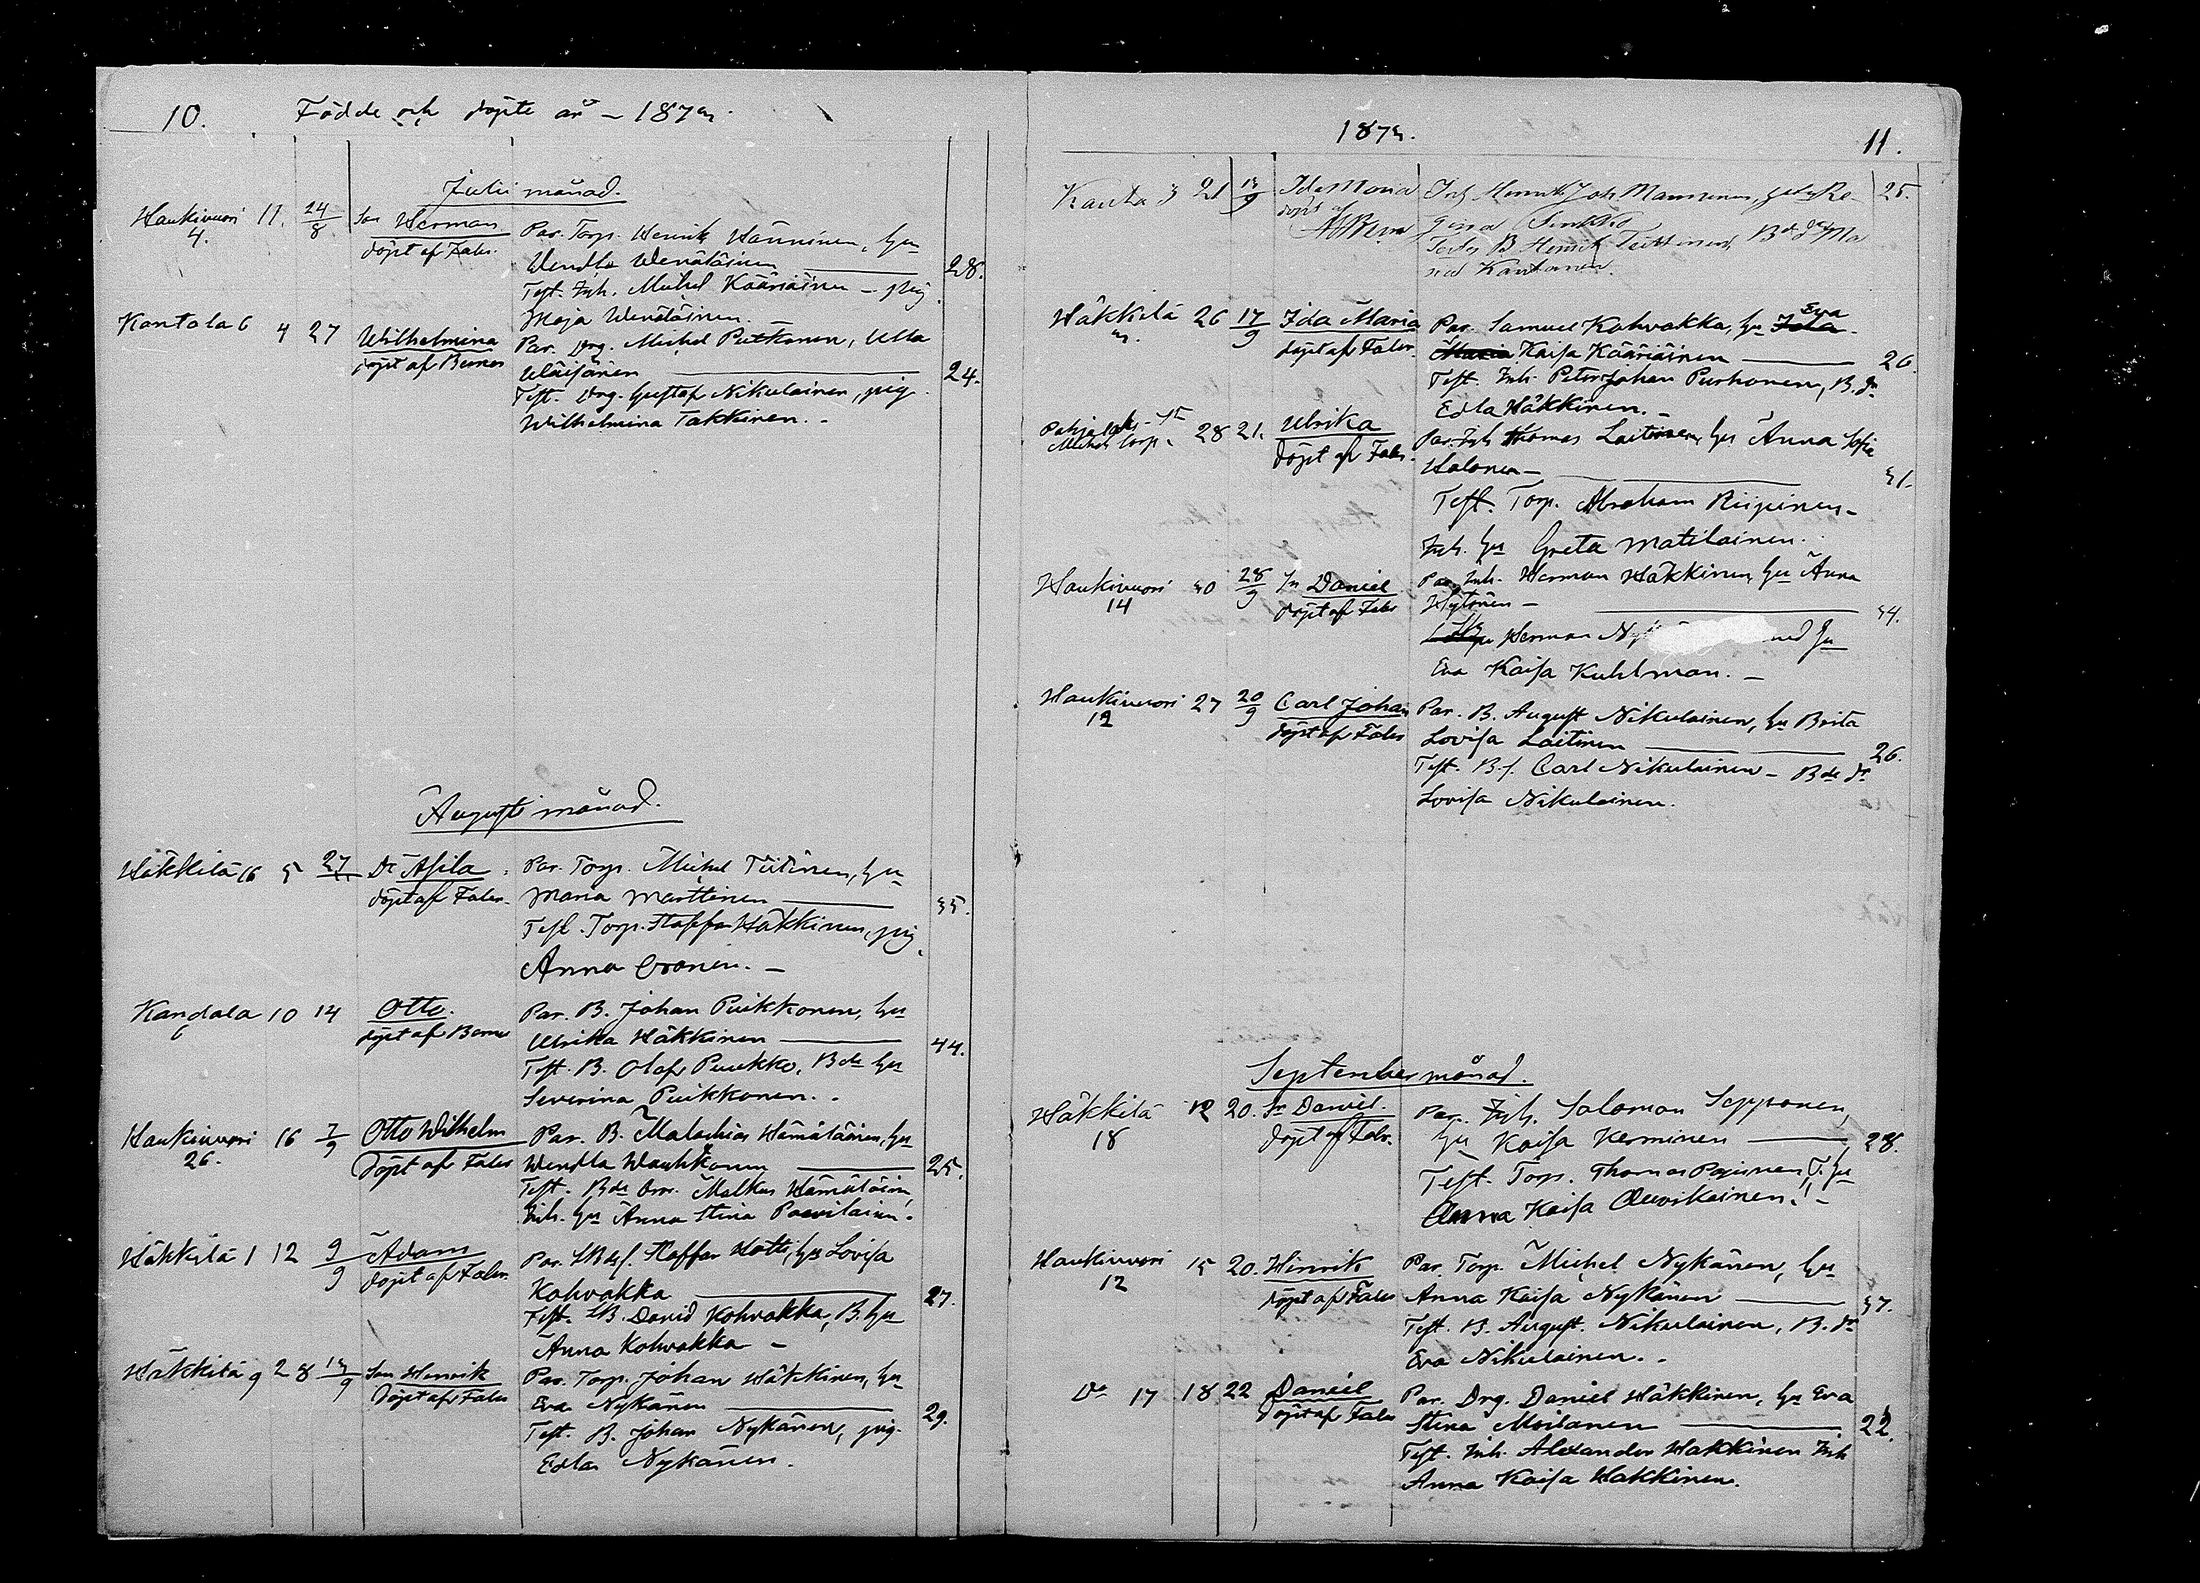 10. Födde och döpte år – 1873.
Julii månad.
Haukivuori 11. 24/8 Son Herman Par. Torp. Henrik Hänninen, hu
4. döpt af Fabr. Wendla Wenäläinen — 28.
Test. Inh. Michel Kääriäinen – pig.
Maja Wenäläinen.
Kantala 6 4 27 Wilhelmina Par. Drg. Michel Putkonen, Ulla
döpt af Bernes Wäisänen — 24.
Test. Drg. Gustaf Nikulainen, pig.
Wilhelmina Takkinen. –
Augusti månad.
Häkkilä 16 5 27 Dr Asila Par. Torp. Michel Tiitinen, hu
döpt af Fabr. Maria Marttinen — 35.
Test. Torp. Staffan Häkkinen, pig.
Anna Oranen. –
Kandala 10 14 Otto. Par. B. Johan Puikkonen, hu
6 döpt af Bernes Ulrika Häkkinen — 44.
Test. B. Olof Puukko, Bde hu
Severina Puikkonen. –
Haukivuori 16 7/9 Otto Wilhelm Par. B. Malachias Hämäläinen, hu
26. döpt af Fabr Wendla Wauhkonen — 25.
Test. Bde Malkus Hämäläinen
Inh. hu Anna Stina Paavilainen.
Häkkilä 1 12 9/9 Adam Par. Staffan Hotti, hu Lovisa
döpt af Fabr. Kohvakka — 27.
Test. David Kohvakka, B. hu
Anna Kohvakka –
Häkkilä 9 28 13/9 Son Henrik Par. Torp. Johan Häkkinen, hu
döpt af Fabr Eva Nykänen — 29.
Test. B. Johan Nykänen, pig.
Edla Nykänen.
1873. 11.
Kanta 3 21 13/9 Ida Maria Inh. Henrik Joh Manninen, hu Re- 25.
döpt af gina Sinkko
Test. B. Henrik Teittinen, Bde dr Ma
ria Kantanen.
Häkkilä 26 17/9 Ida Maria Par. Samuel Kohvakka, hu Eva
3. döpt af Fabr. Kaisa Kääriäinen — 26.
Test. Inh. Peter Johan Purhonen, B. dr
Edla Häkkinen. –
28 21. Ulrika Par. Inh Thomas Laitinen, hu Anna Sofia
Torp. döpt af Fabr. Halonen – 31.
Test. Torp. Abraham Riipinen –
Inh. hu Greta Matilainen.
Haukivuori 30 28/9 Sn Daniel Par. Inh. Herman Häkkinen, hu Anna
14 döpt af Fabr Hytönen – 34.
Herman Ny med hu
Eva Kaisa Kuhlman. –
Haukivuori 27 20/9 Carl Johan Par. B. August Nikulainen, hu Brita
12 döpt af Fabr Lovisa Laitinen — 26.
Test. B.s. Carl Nikulainen – Bde dr
Lovisa Nikulainen.
September månad.
Häkkilä 12 20. Sn Daniel. Par. Inh. Salomon Sepponen,
18 döpt af Fabr. hu Kaisa Kerminen — 28.
Test. Torp. Thomas Pajunen, T. hu
Anna Kaisa Auvikainen. –
Haukivuori 15 20. Hinrik Par. Torp. Michel Nykänen, hu
12 döpt af Fabr Anna Kaisa Nykänen — 37.
Test. B. August. Nikulainen, B. dr
Eva Nikulainen. –
Do 17 18 22 Daniel Par. Drg. Daniel Häkkinen, hu Eva
döpt af Fabr Stina Moilanen — 22.
Test. Inh. Alexander Hakkinen Inh
Anna Kaisa Hakkinen.